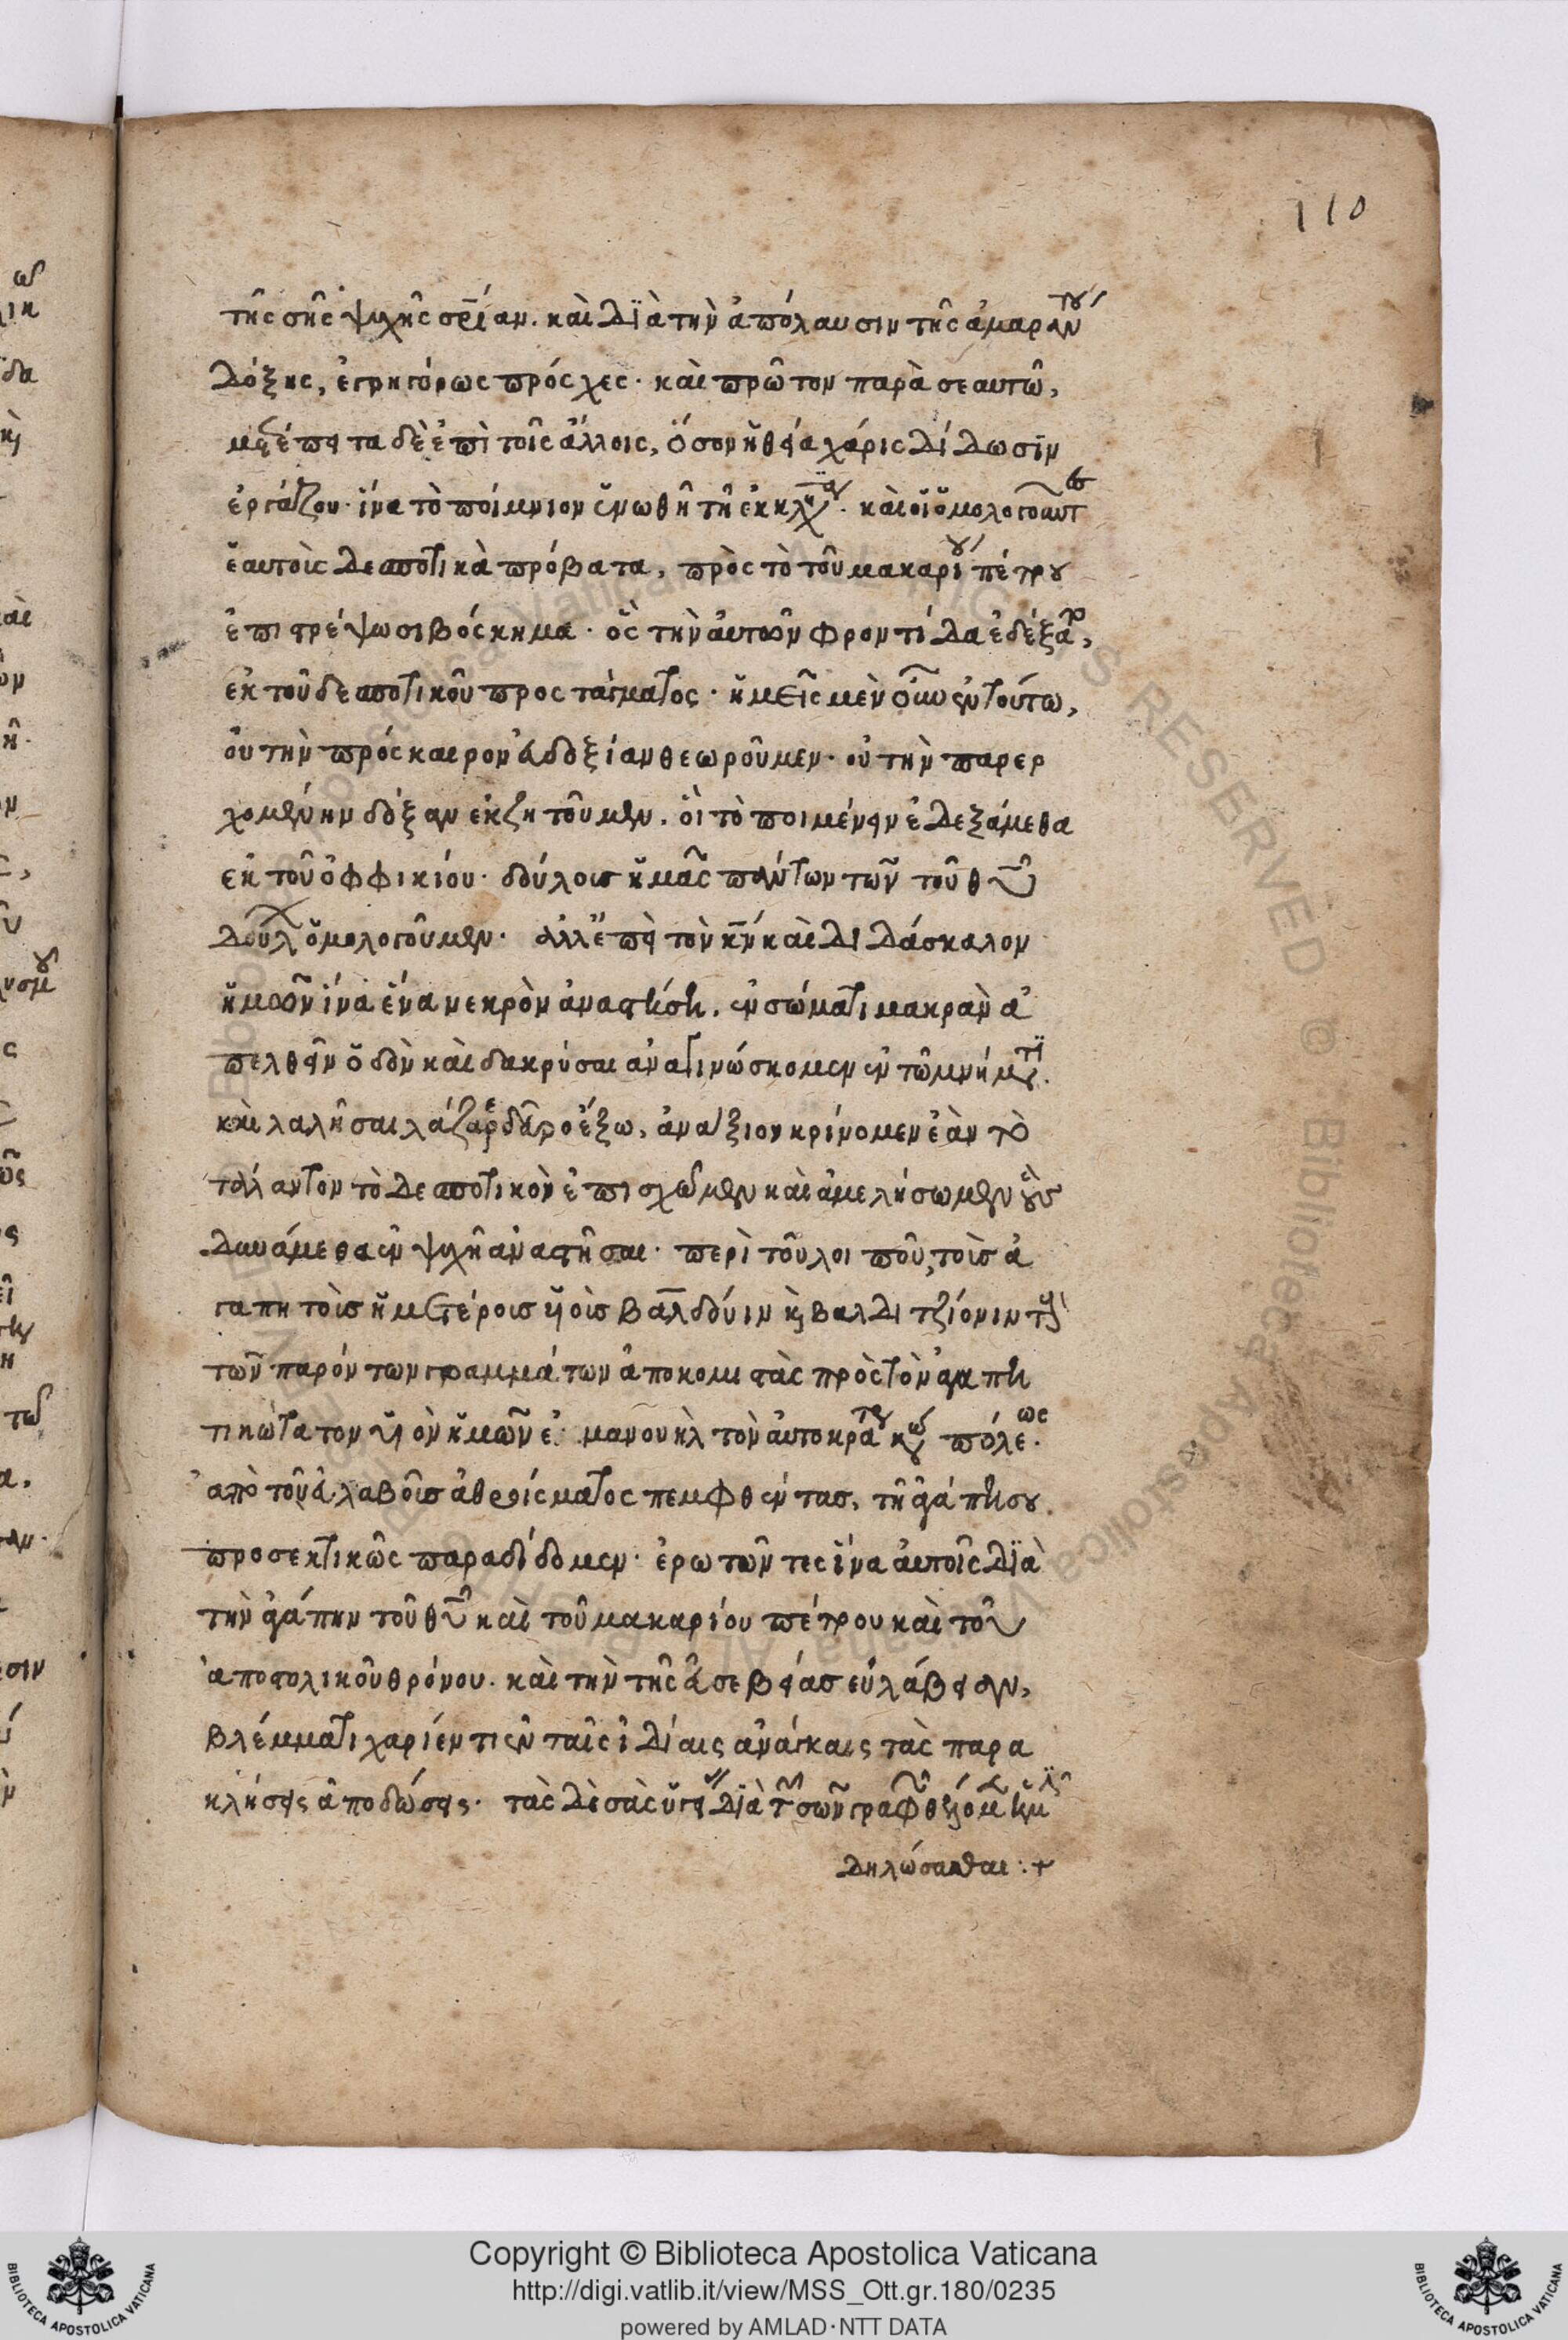 110
τῆς σῆς ψυχῆς σρίαν. καὶ διὰ τὴν ἀπόλαυσιν τῆς ἀμαράντου
δόξης, ἐγρηγόρως πρόσχες· καὶ πρῶτον παρὰ σεαυτῶ,
μετέπειτα δὲ ἐπὶ τοῖς ἄλλοις, ὅσον ἡ θεία χάρις δίδωσιν
ἐργάζου· ἵνα τὸ ποίμνιον ἑνωθῆ τῆ ἐκκλησία. καὶ οἱ ὁμολογοῦντες
ἑαυτοὶς δεσποτικὰ πρόβατα, πρὸς τὸ τοῦ μακαρίου πέτρου
ἐπιστρέψωσι βόσκημα· ὃς τὴν αὐτῶν φροντίδα ἐδέξατο,
ἐκ τοῦ δεσποτικοῦ προστάγματος· ἡμεῖς μὲν οὕτως ἐν τούτω,
οὐ τὴν πρόσκαιρον εὐδοξίαν θεωροῦμεν· οὐ τὴν παρερ
χομένην δόξαν ἐκζητοῦμεν. οἳ τὸ ποιμένειν ἐδεξάμεθα
ἐκ τοῦ ὀφφικίου· δούλοις ἡμᾶς πάντων τῶν τοῦ θυ
δούλων ὁμολογοῦμεν· ἀλλ' ἐπεὶ τὸν κν καὶ διδάσκαλον
ἡμῶν ἵνα ἕνα νεκρὸν ἀναστήση. ἐν σώματι μακρὰν ἀ
πελθεῖν ὁδὸν καὶ δακρύσαι ἀναγινώσκομεν ἐν τῶ μνήματι.
καὶ λαλῆσαι λάζαρε δεῦρο ἔξω, ἀνάξιον κρίνομεν ἐὰν τὸ
τάλαντον τὸ δεσποτικὸν ἐπισχῶμεν καὶ ἀμελήσωμεν οὓς
δυνάμεθα ἐν ψυχῆ ἀναστῆσαι· περὶ τοῦ λοιποῦ, τοὶς ἀ
γαπητοὶς ἡμετέροις υἱοὶς βαλδούιν κ βαλδιτζίονιν τοὺς
τῶν παρόντων γραμμάτων ἀποκομιστὰς πρὸς τὸν ἀγαπη
τικώτατον υἱὸν ἡμῶν ἐμανουὴλ τὸν αὐτοκράτορα κωνπόλεως.
ἀπὸ τοῦ εὐλαβοῖς ἀθροίσματος πεμφθέντας, τῆ ἀγάπη σου
προσεκτικῶς παραδίδομεν· ἐρωτῶντες ἵνα αὐτοῖς διὰ
τὴν ἀγάπην τοῦ θυ καὶ τοῦ μακαρίου πέτρου καὶ τοῦ
ἀποστολικοῦ θρόνου. καὶ τὴν τῆς εὐσεβείας εὐλάβειαν,
βλέμματι χαρίεντι ἐν ταῖς ἰδίαις ἀνάγκαις τὰς παρα
κλήσεις ἀποδώσεις· τὰς δὲ σὰς
δηλώσασθαι :+
Copyright © Biblioteca Apostolica Vaticana
http://digi.vatlib.it/view/MSS_Ott.gr.180/0235
powered by AMLAD·NTT DATA